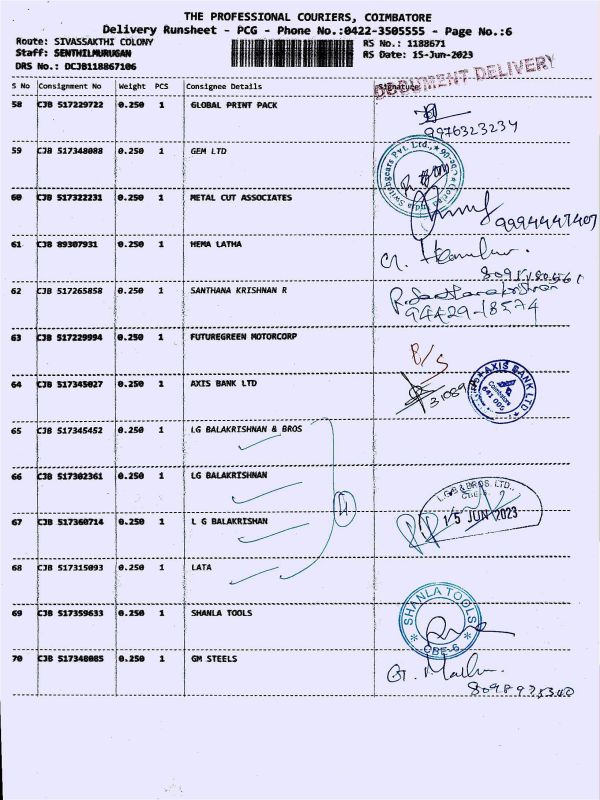 THE PROFESSIONAL COURIERS, COIMBATORE
Delivery Runsheet - PCG - Phone No.:0422-3505555 - Page No.:6
Route: SIVASSAKTHI COLONY
RS No.: 1188671
Staff: SENTHILMURUGAN
RS Date: 15-Jun-2023
DRS No.: DCJB118867106
DOCUMENT DELIVERY
S No Consignment No Weight PCS Consignee Details Signature
58 CJB 517229722 0.250 1 GLOBAL PRINT PACK
9976323234
59 CJB 517348088 0.250 1 GEM LTD
Switchgears Pvt. Ltd.,
60 CJB 517322231 0.250 1 METAL CUT ASSOCIATES
9994447407
61 CJB 89307931 0.250 1 HEMA LATHA
62 CJB 517265858 0.250 1 SANTHANA KRISHNAN R
R. Santhanakrishnan
94429-18574
63 CJB 517229994 0.250 1 FUTUREGREEN MOTORCORP
R/S
64 CJB 517345027 0.250 1 AXIS BANK LTD
31089
AXIS BANK LTD
Coimbatore
65 CJB 517345452 0.250 1 LG BALAKRISHNAN & BROS
66 CJB 517302361 0.250 1 LG BALAKRISHNAN
L.G.B & BROS. LTD.,
CBE-6.
67 CJB 517360714 0.250 1 L G BALAKRISHAN
15 JUN 2023
68 CJB 517315093 0.250 1 LATA
69 CJB 517359633 0.250 1 SHANLA TOOLS
SHANLA TOOLS
CBE-6
70 CJB 517348085 0.250 1 GM STEELS